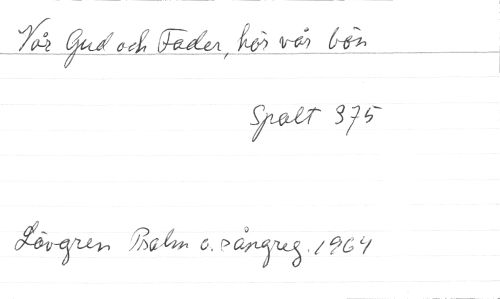 Vår Gud och Fader, hör vår bön
Spalt 375
Lövgren Psalm o. sångreg. 1964